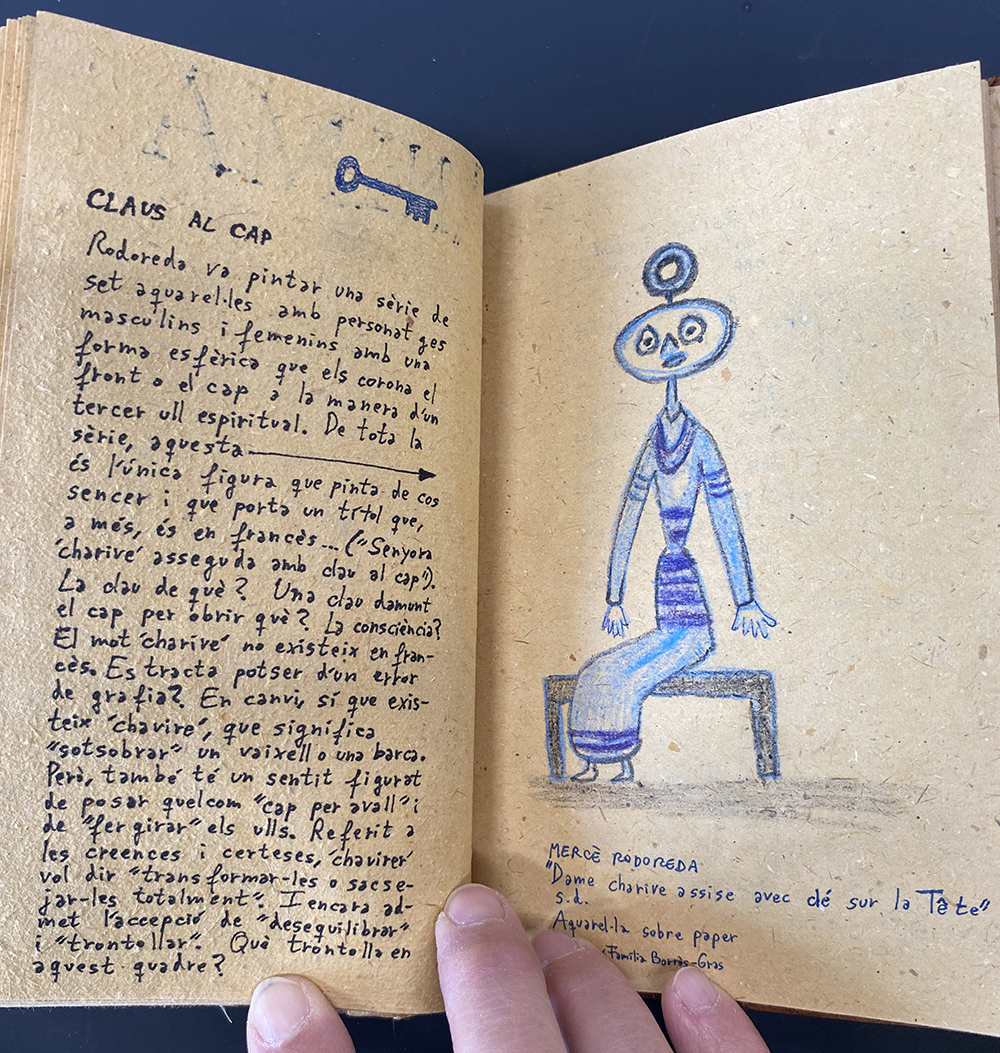 CLAUS AL CAP
Rodoreda va pintar una sèrie de
set aquarel·les amb personatges
masculins i femenins amb una
forma esfèrica que els corona el
front o el cap a la manera d'un
tercer ull espiritual. De tota la
sèrie, aquesta
és l'única figura que pinta de cos
sencer i que porta un títol que,
a més, és en francès... ("Senyora
'charive' asseguda amb clau al cap").
La clau de què? Una clau damunt
el cap per obrir què? La consciència?
El mot 'charive' no existeix en fran-
cès. Es tracta potser d'un error
de grafia? En canvi, sí que exis-
teix 'chavire', que significa
"sotsobrar" un vaixell o una barca.
Però, també té un sentit figurat
de posar quelcom "cap per avall" i
de "fer girar" els ulls. Referit a
les creences i certeses, 'chavirer'
vol dir "transformar-les o sacse-
jar-les totalment". I encara ad-
met l'accepció de "desequilibrar"
i "trontollar". Què trontolla en
aquest quadre?
MERCÈ RODOREDA
"Dame charive assise avec clé sur la Tête"
s.d.
Aquarel·la sobre paper
Família Borràs-Gras